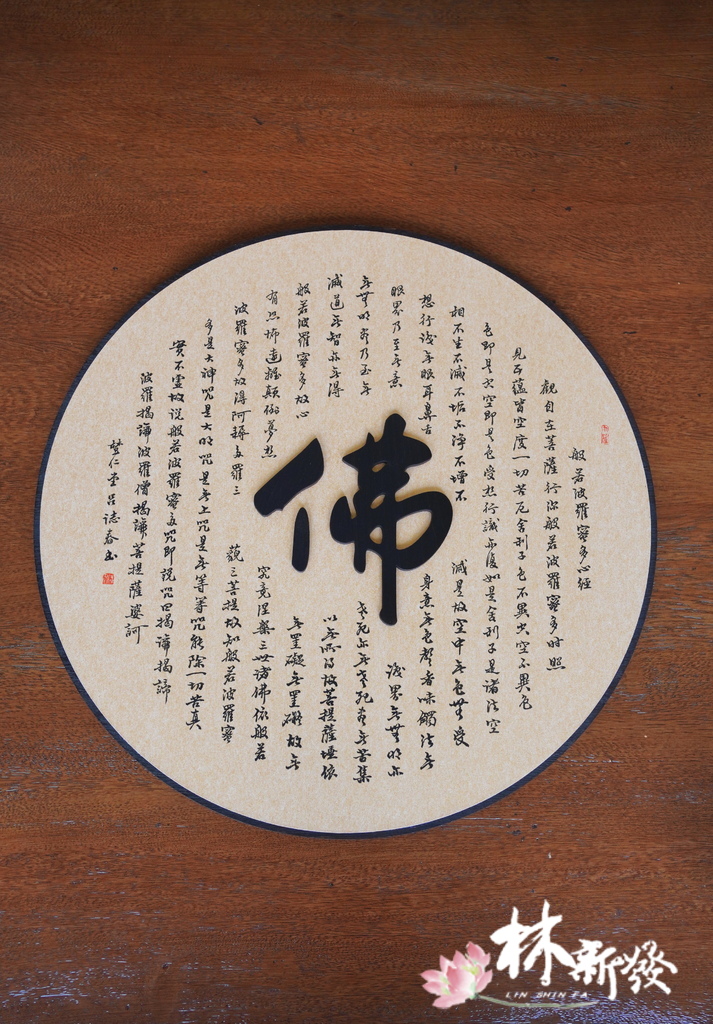 般若波羅蜜多心经
觀自在菩薩行深般若波羅蜜多时照
見五蘊皆空度一切苦厄舍利子色不異空空不異色
色即是空空即是色受想行識亦復如是舍利子是諸法空
相不生不滅不垢不淨不增不減是故空中無色無受
想行識無眼耳鼻舌身意無色聲香味觸法無
眼界乃至無意識界無無明亦
無無明盡乃至無老死亦無老死盡無苦集
滅道無智亦無得以無所得故菩提薩埵依
般若波羅蜜多故心無罣礙無罣礙故無
有恐怖遠離顛倒夢想究竟涅槃三世諸佛依般若
波羅蜜多故得阿耨多羅三藐三菩提故知般若波羅蜜
多是大神咒是大明咒是無上咒是無等等咒能除一切苦真
實不虛故說般若波羅蜜多咒即說咒曰揭諦揭諦
波羅揭諦波羅僧揭諦菩提薩婆訶
仁堂呂誌春书
佛
林新發
LIN SHIN FA